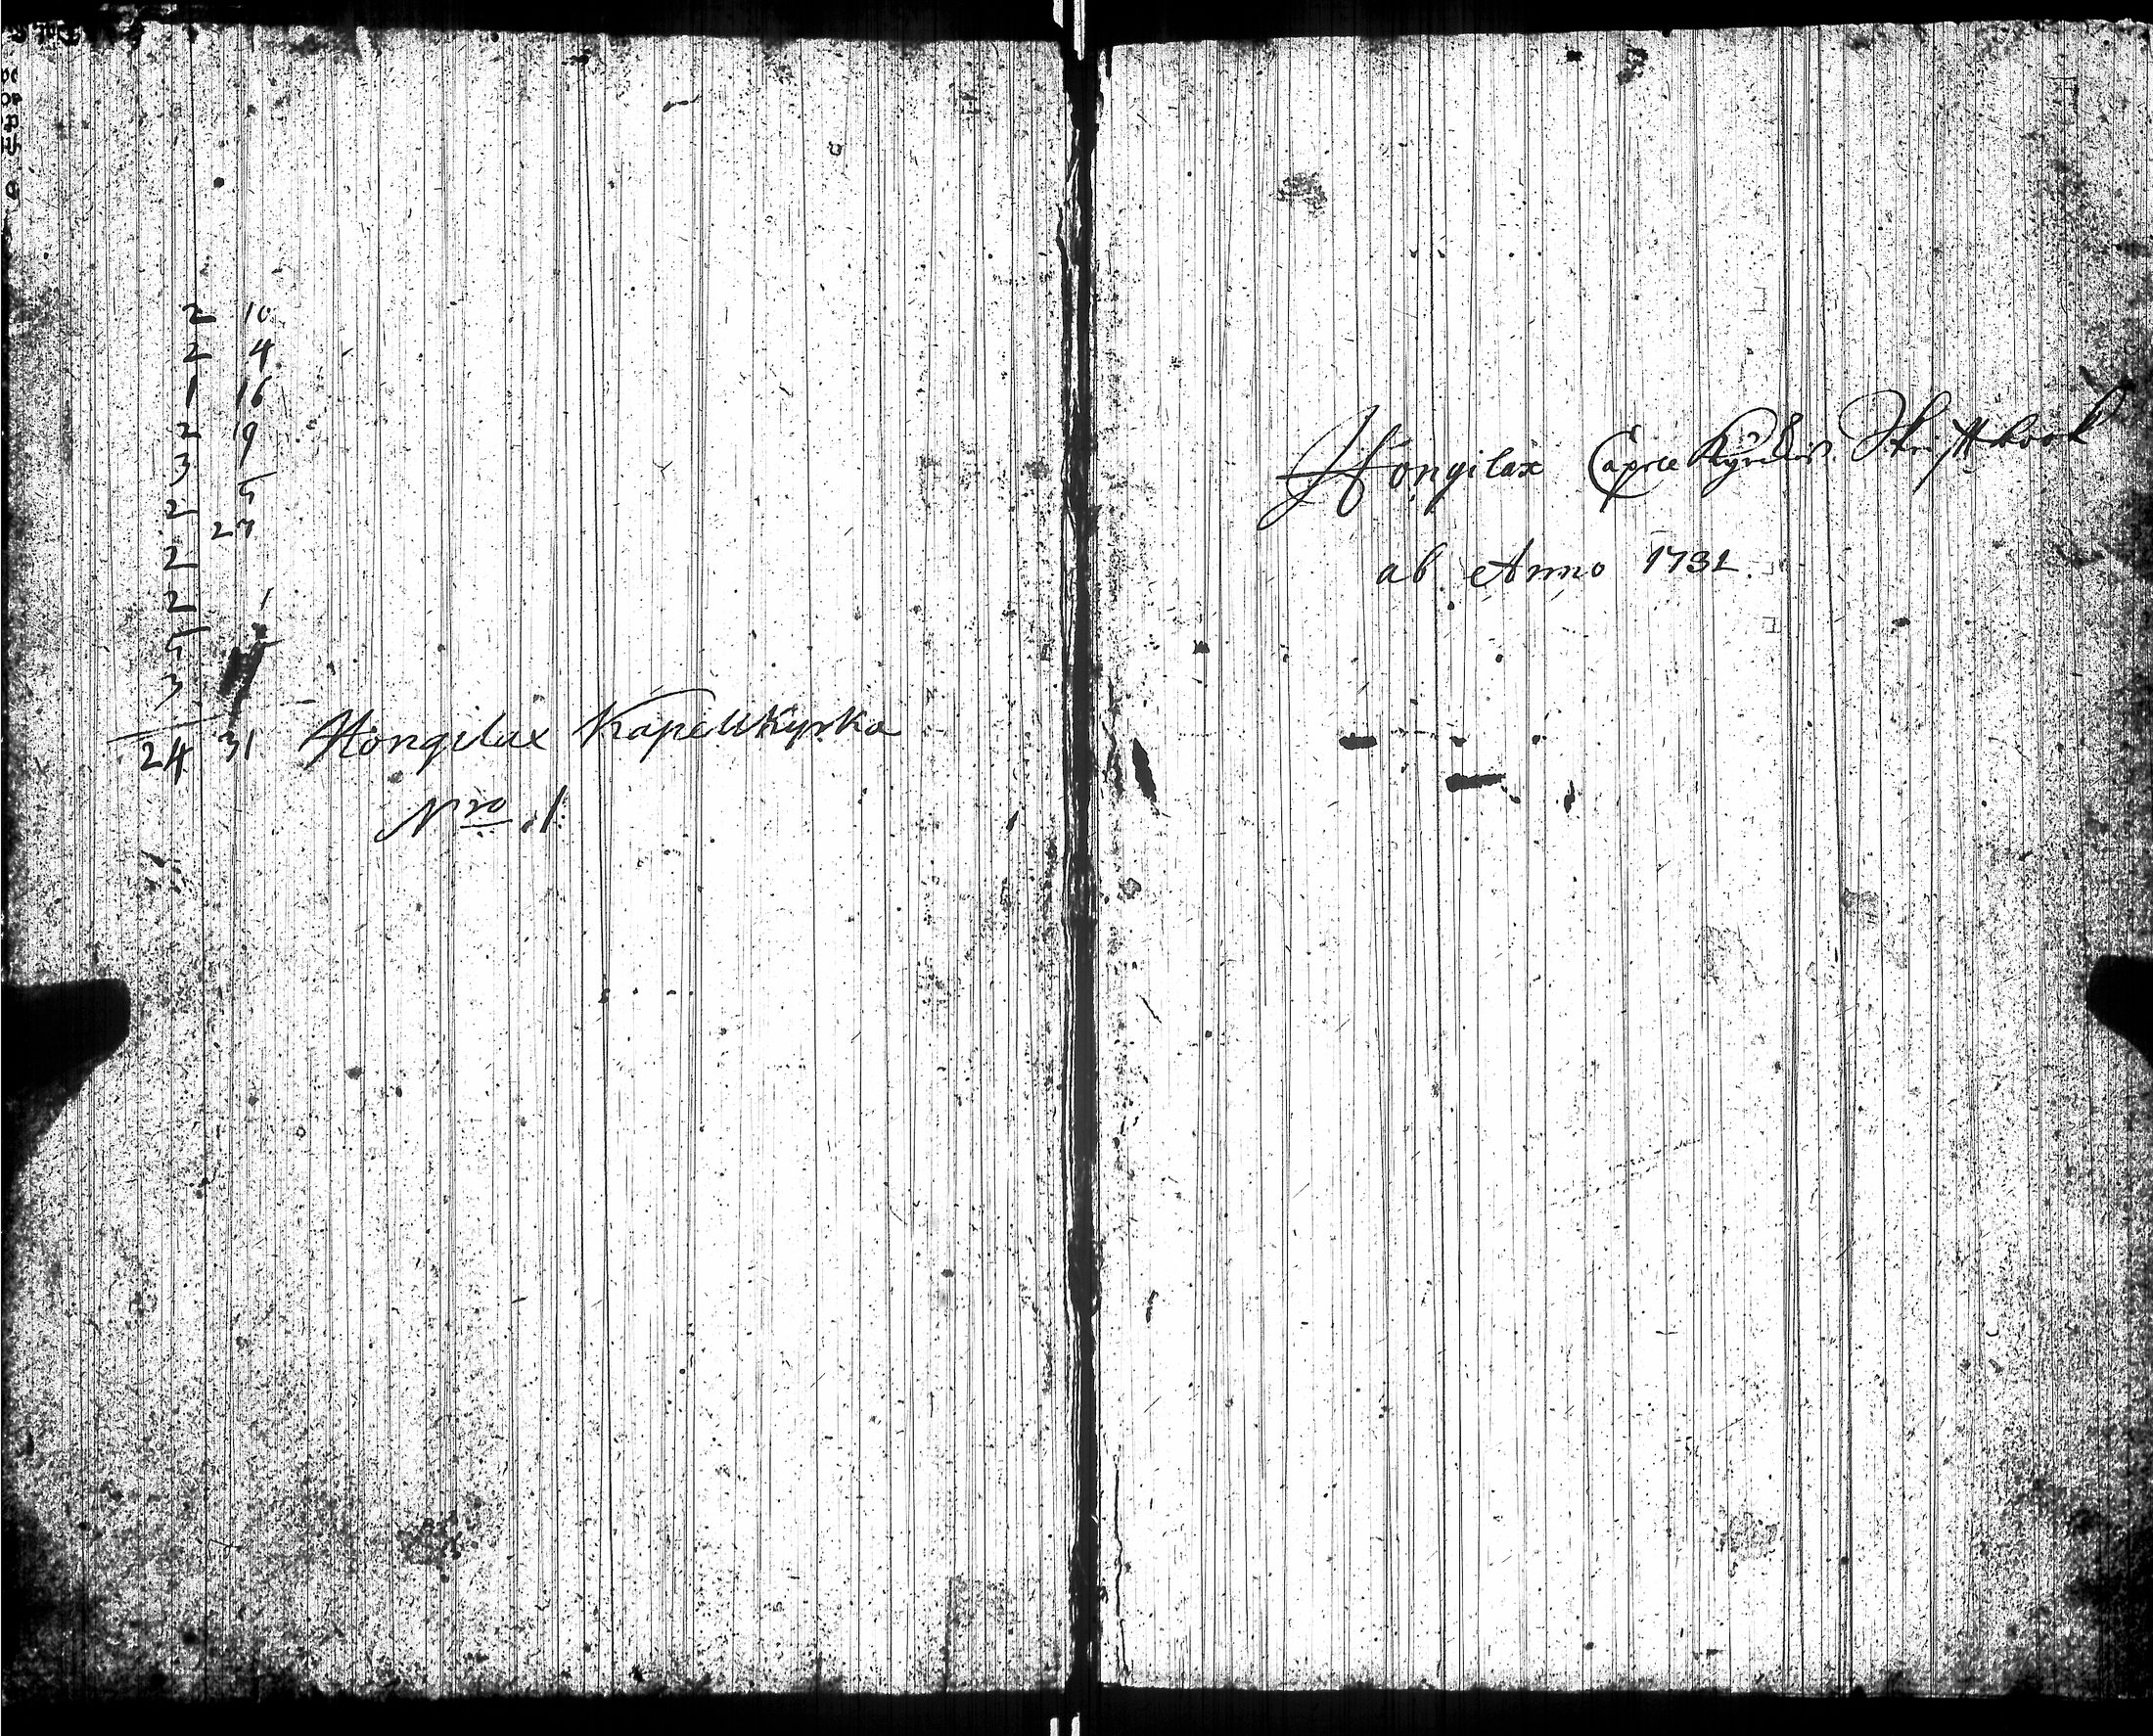 2 10
2 4
1 16
2 19
3
5
2
27
2
2 1
5
3
24 31
Hongilax Kapellkyrka
Nro. 1.
Hongilax Skrifttbook
ab Anno 1732.